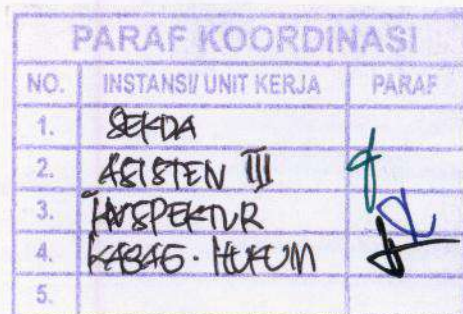 PARAF KOORDINASI
NO. INSTANSI/ UNIT KERJA PARAF
1. SEKDA
2. ASISTEN III
3. INSPEKTUR
4. KABAG. HUKUM
5.